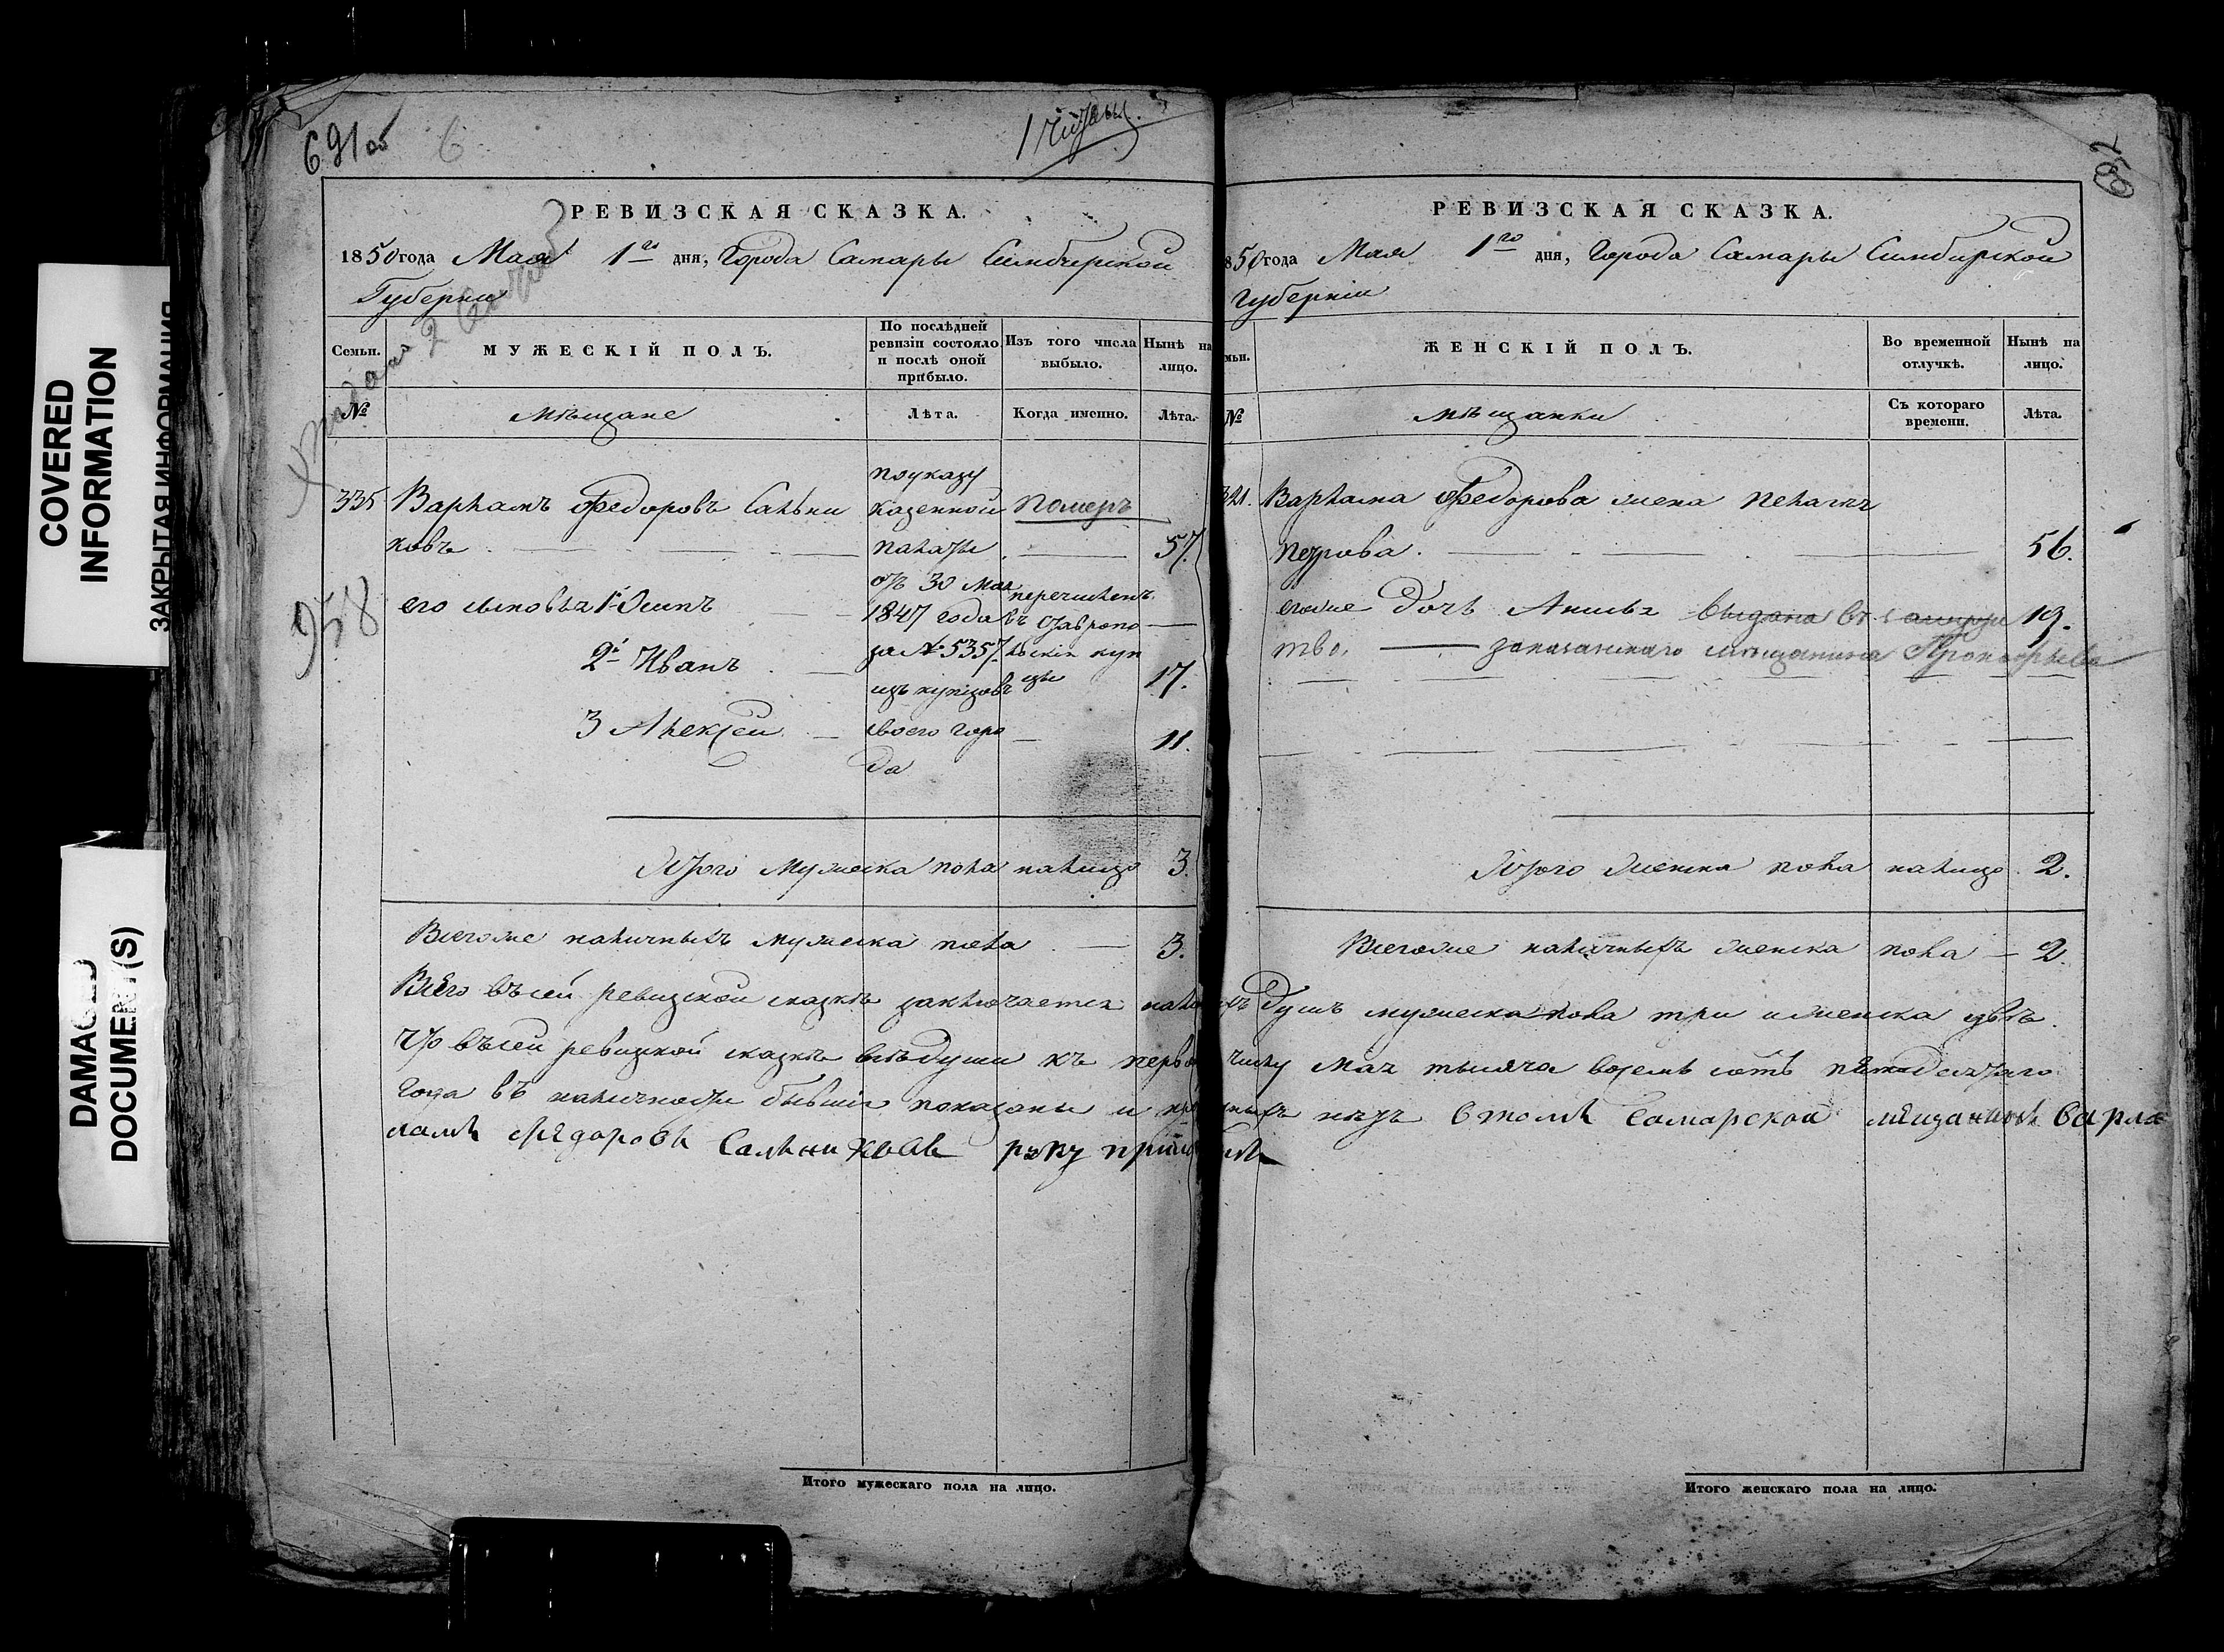 COVERED
INFORMATION
ЗАКРЫТАЯ ИНФОРМАЦИЯ
DAMAGED
DOCUMENT(S)
691 об
6
РЕВИЗСКАЯ СКАЗКА.
1850 года Мая 1го дня, Города Самары Симбирской
Губернии
Семьи.
МУЖЕСКІЙ ПОЛЪ.
По послѣдней
ревизіи состояло
и послѣ оной
прибыло.
Изъ того числа
выбыло.
Нынѣ на
лицо.
№
мѣщане
Лѣта.
Когда именно.
Лѣта.
335 Варламъ Федоровъ Сальни
ковъ
по указу
казенной
палаты
отъ 30 Мая
1847 года
за № 5357
изъ купцовъ
своего горо
да
Померъ
57.
958
его сыновья 1й Осипъ
перечисленъ
въ Ставропо
льскіи куп
цы
2й Иванъ
17.
3 Алексей
11.
Итого Мужеска пола налицо 3
Всегоже наличныхъ мужеска пола 3.
692
РЕВИЗСКАЯ СКАЗКА.
850 года Мая 1го дня, Города Самары Симбирской
Губерніи
мьи.
ЖЕНСКІЙ ПОЛЪ.
Во временной
отлучкѣ.
Нынѣ на
лицо.
№
мѣщанки
Съ котораго
времени.
Лѣта.
321. Варлама Федорова жена Пелагея
Петрова. 56.
егоже дочь Анисья выдана въ замуже 19.
тво,
мещанина Прокофьева
Итого Женска пола налицо 2.
Всегоже наличныхъ женска пола 2.
Всего въ сей ревизской сказкѣ заключается налич ыхъ душъ мужеска пола три и женска двѣ.
Что въ сей ревизской сказкѣ всѣ души къ перво числу Мая тысяча восемь сотъ пятдесятаго
года въ наличности бывшія показаны и про ныхъ нѣтъ в томъ Самарской мещанинъ Варла
ламъ Федоровъ Сальниковъ руку прило илъ
Итого мужескаго пола на лицо.
Итого женскаго пола на лицо.